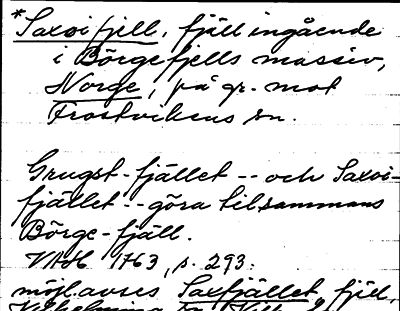 *Saxoifjell, fjäll ingående
i Börgefjells massiv,
Norge, på gr. mot
Frostvikens sn.
Grugst-fjället -- och Saxoi-
fjället -- göra tilsammans
Börge-fjäll.
VAH 1763, s. 293.
möjl. avses Saxfjället, fjäll,
Vilhelmina sn